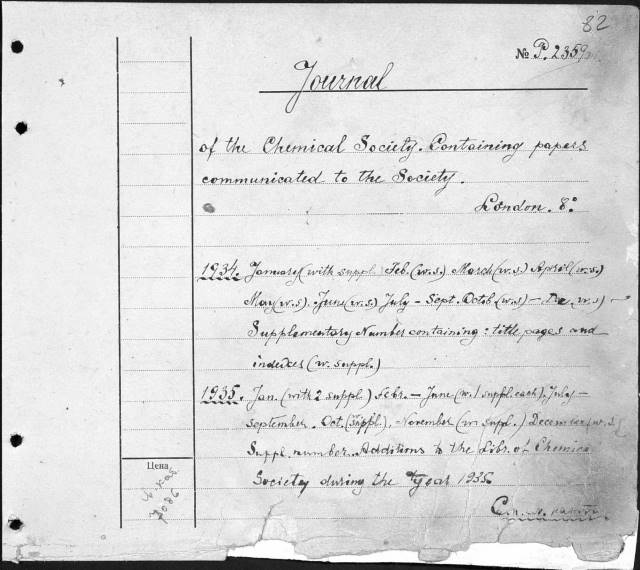 82
№ P. 2359
Journal
of the Chemical Society. Containing papers
communicated to the Society.
London. 8°
1934. January (with suppl.) Feb. (w.s.) March (w.s.) April (w.s.)
May (w.s). June (w.s.) July – Sept. Octob (w.s) – De (w.s) –
Supplementary Number containing: title pages and
indexes (w. suppl.)
1935. Jan. (with 2 suppl.) Febr. – June (w. 1 suppl. each). July –
September. Oct. (suppl.). November (w. suppl.) December (w. s
Suppl. number. Additions to the Libr. of Chemica
Society during the Year 1935
Цена